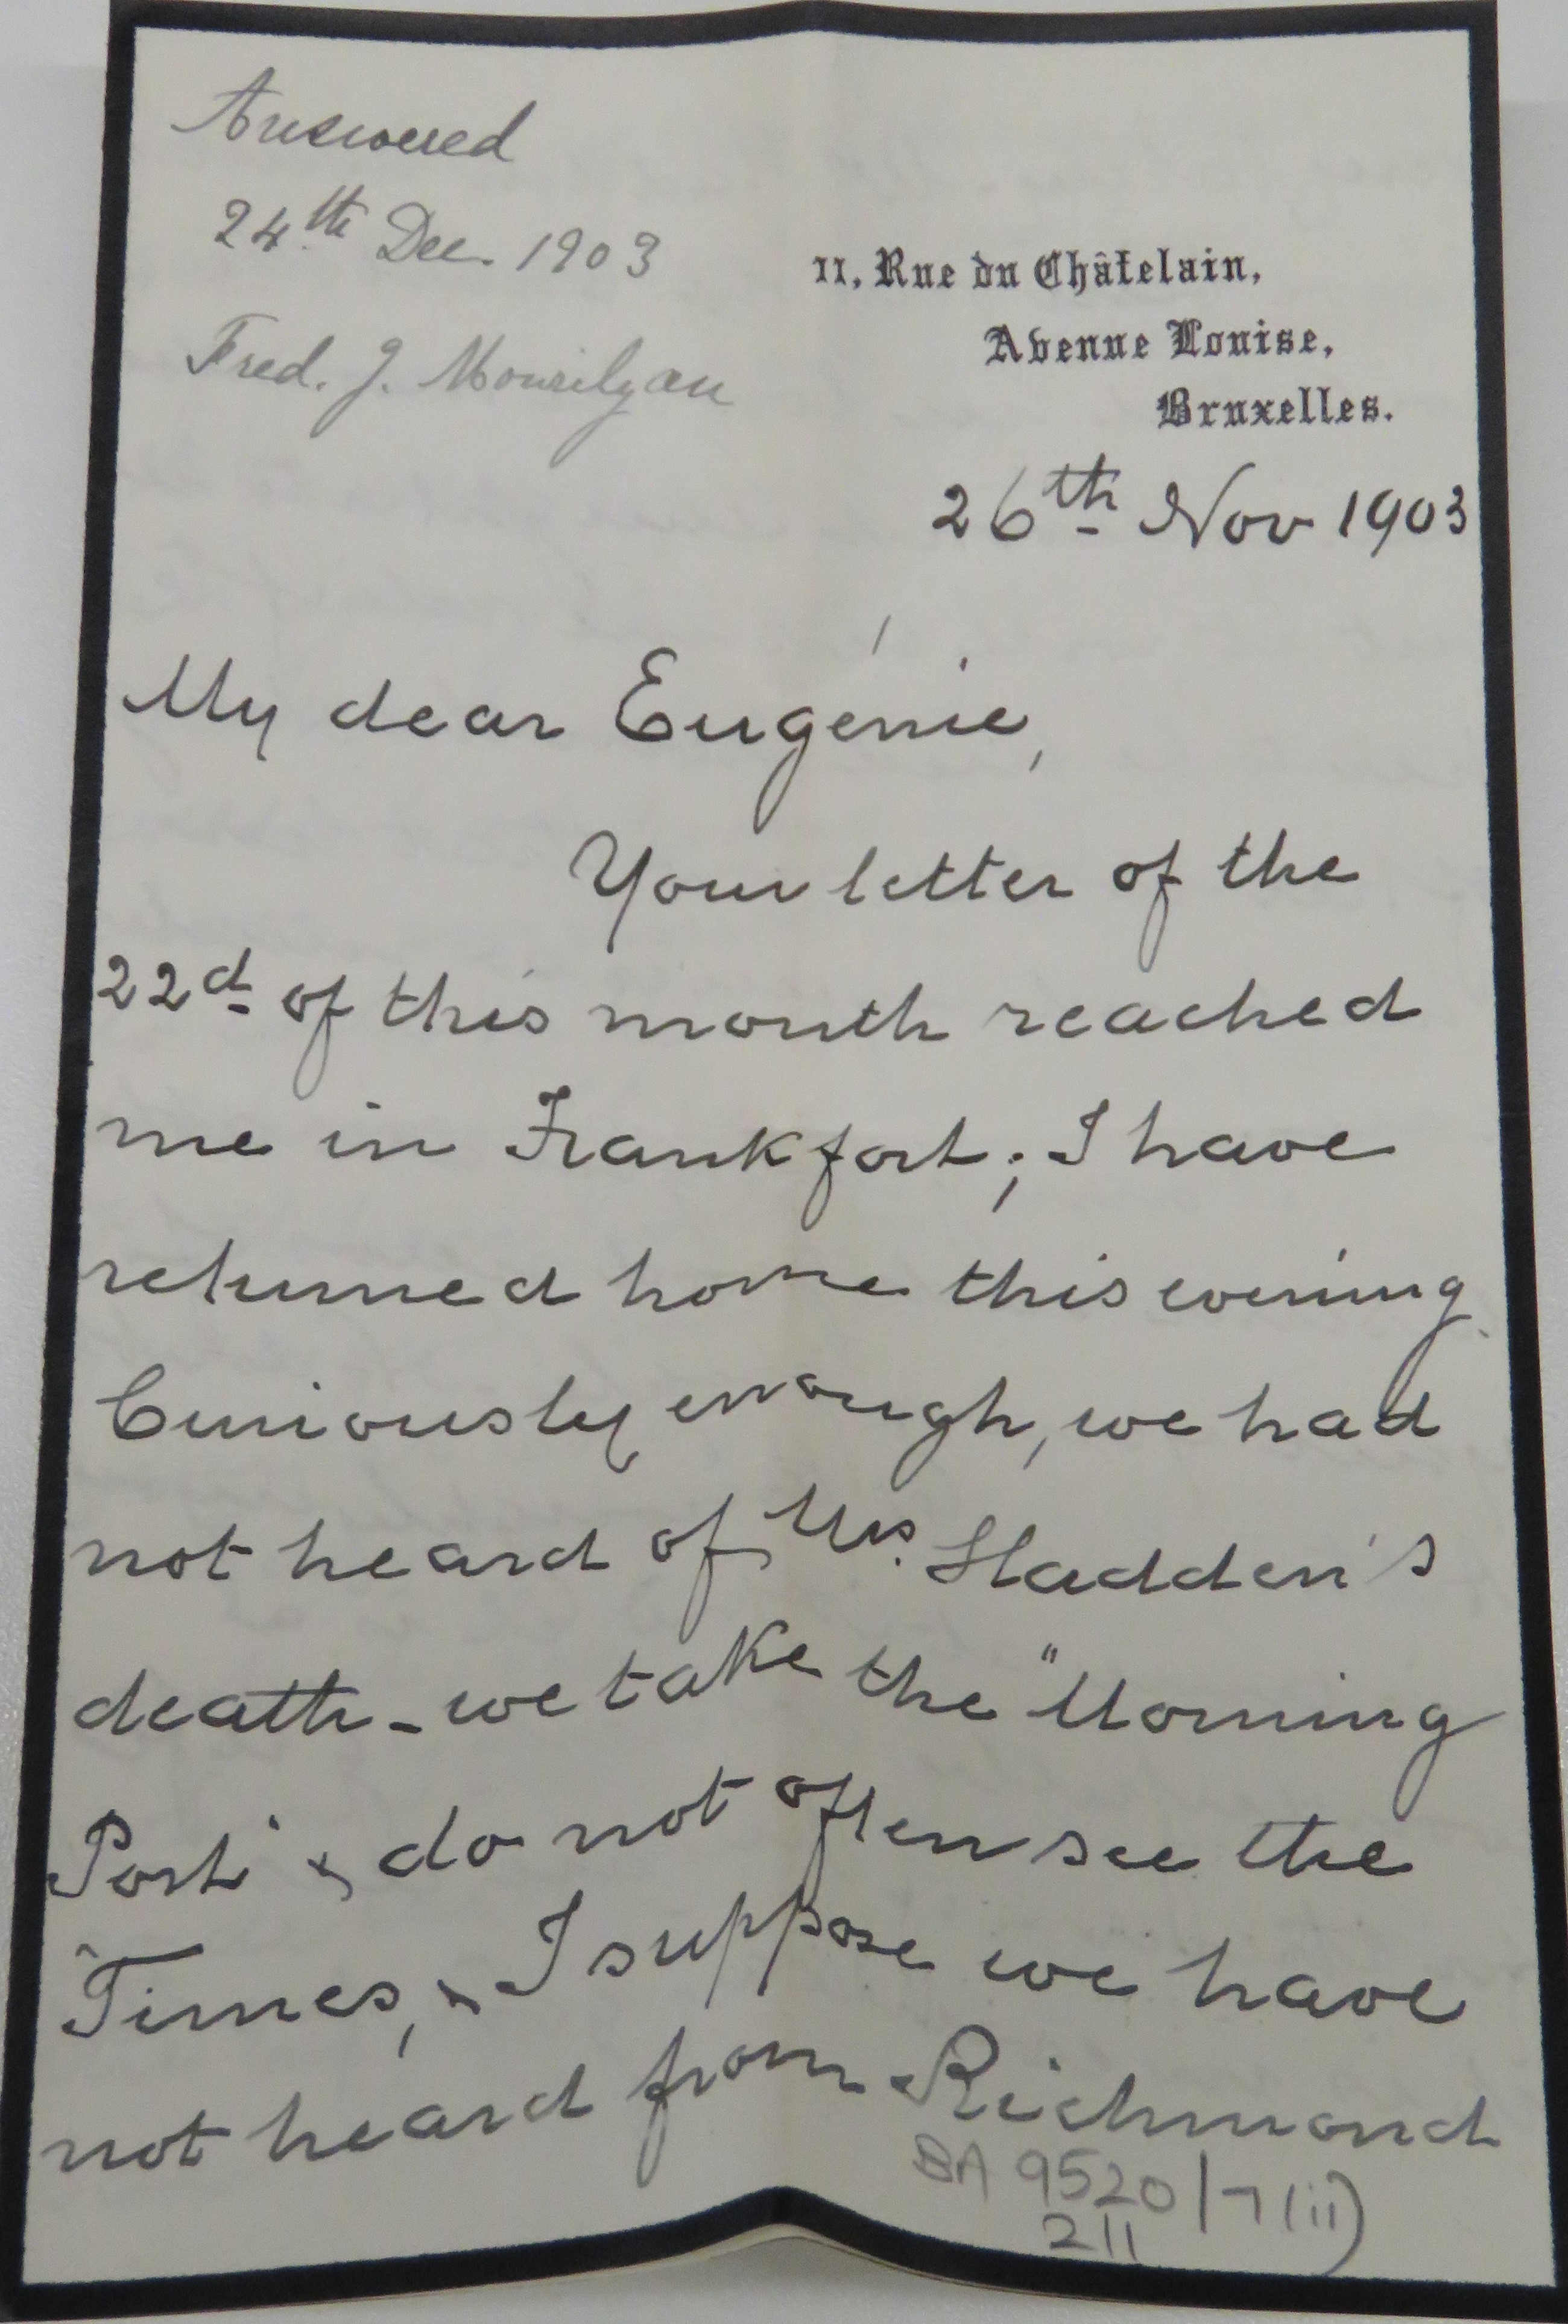 Answered
24th Dec. 1903
Fred. J. Mourilyan
11, Rue du Châtelain,
Avenue Louise,
Bruxelles.
26th Nov 1903
My dear Eugénie,
Your letter of the
22d of this month reached
me in Frankfort; I have
returned home this evening.
Curiously enough, we had
not heard of Mrs. Sladden's
death - we take the "Morning
Post" & do not often see the
Times, & I suppose we have
not heard from Richmond
BA 9520/7(ii)
211